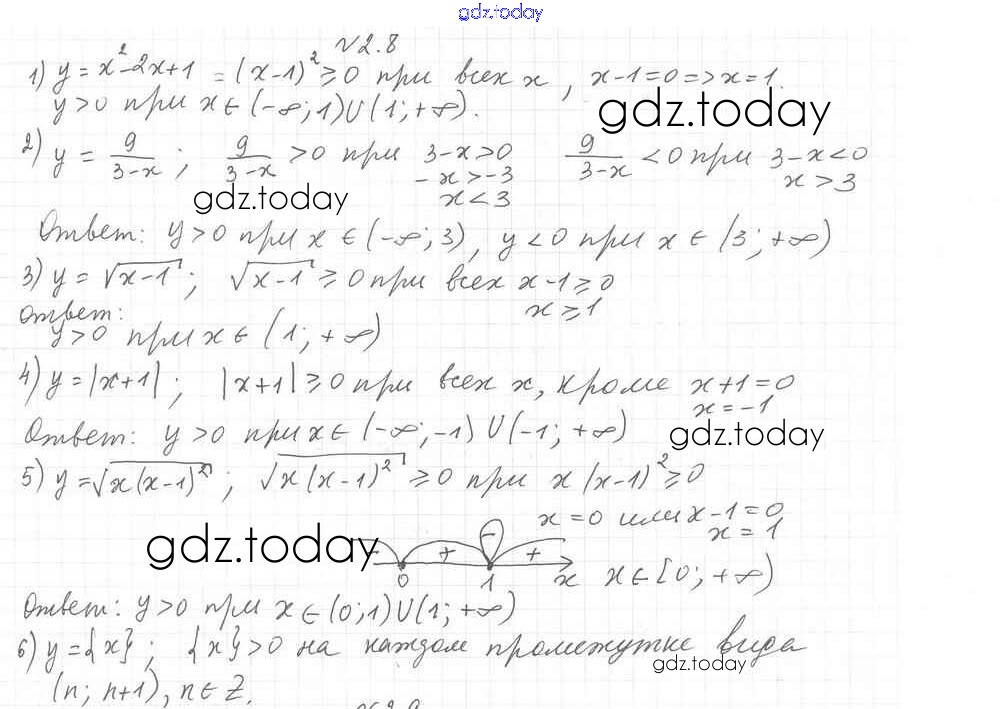 gdz.today
№2.8
1) y = x² - 2x + 1 = (x-1)² ≥ 0 при всех x, x-1=0 => x=1.
y>0 при x ∈ (-∞; 1) ∪ (1; +∞).
gdz.today
2) y = 9/(3-x) ; 9/(3-x) > 0 при 3-x>0 9/(3-x) < 0 при 3-x<0
-x>-3 x>3
x<3
gdz.today
Ответ: y>0 при x ∈ (-∞; 3), y<0 при x ∈ (3; +∞)
3) y = √(x-1) ; √(x-1) ≥ 0 при всех x-1 ≥ 0
x ≥ 1
Ответ:
y>0 при x ∈ (1; +∞)
4) y = |x+1| ; |x+1| ≥ 0 при всех x, кроме x+1=0
x=-1
Ответ: y>0 при x ∈ (-∞; -1) ∪ (-1; +∞)
gdz.today
5) y = √(x(x-1)²) ; √(x(x-1)²) ≥ 0 при x(x-1)² ≥ 0
x=0 или x-1=0
x=1
gdz.today
- + - +
0 1 x x ∈ [0; +∞)
Ответ: y>0 при x ∈ (0; 1) ∪ (1; +∞)
6) y = {x} ; {x} > 0 на каждом промежутке вида
gdz.today
(n; n+1), n ∈ Z.